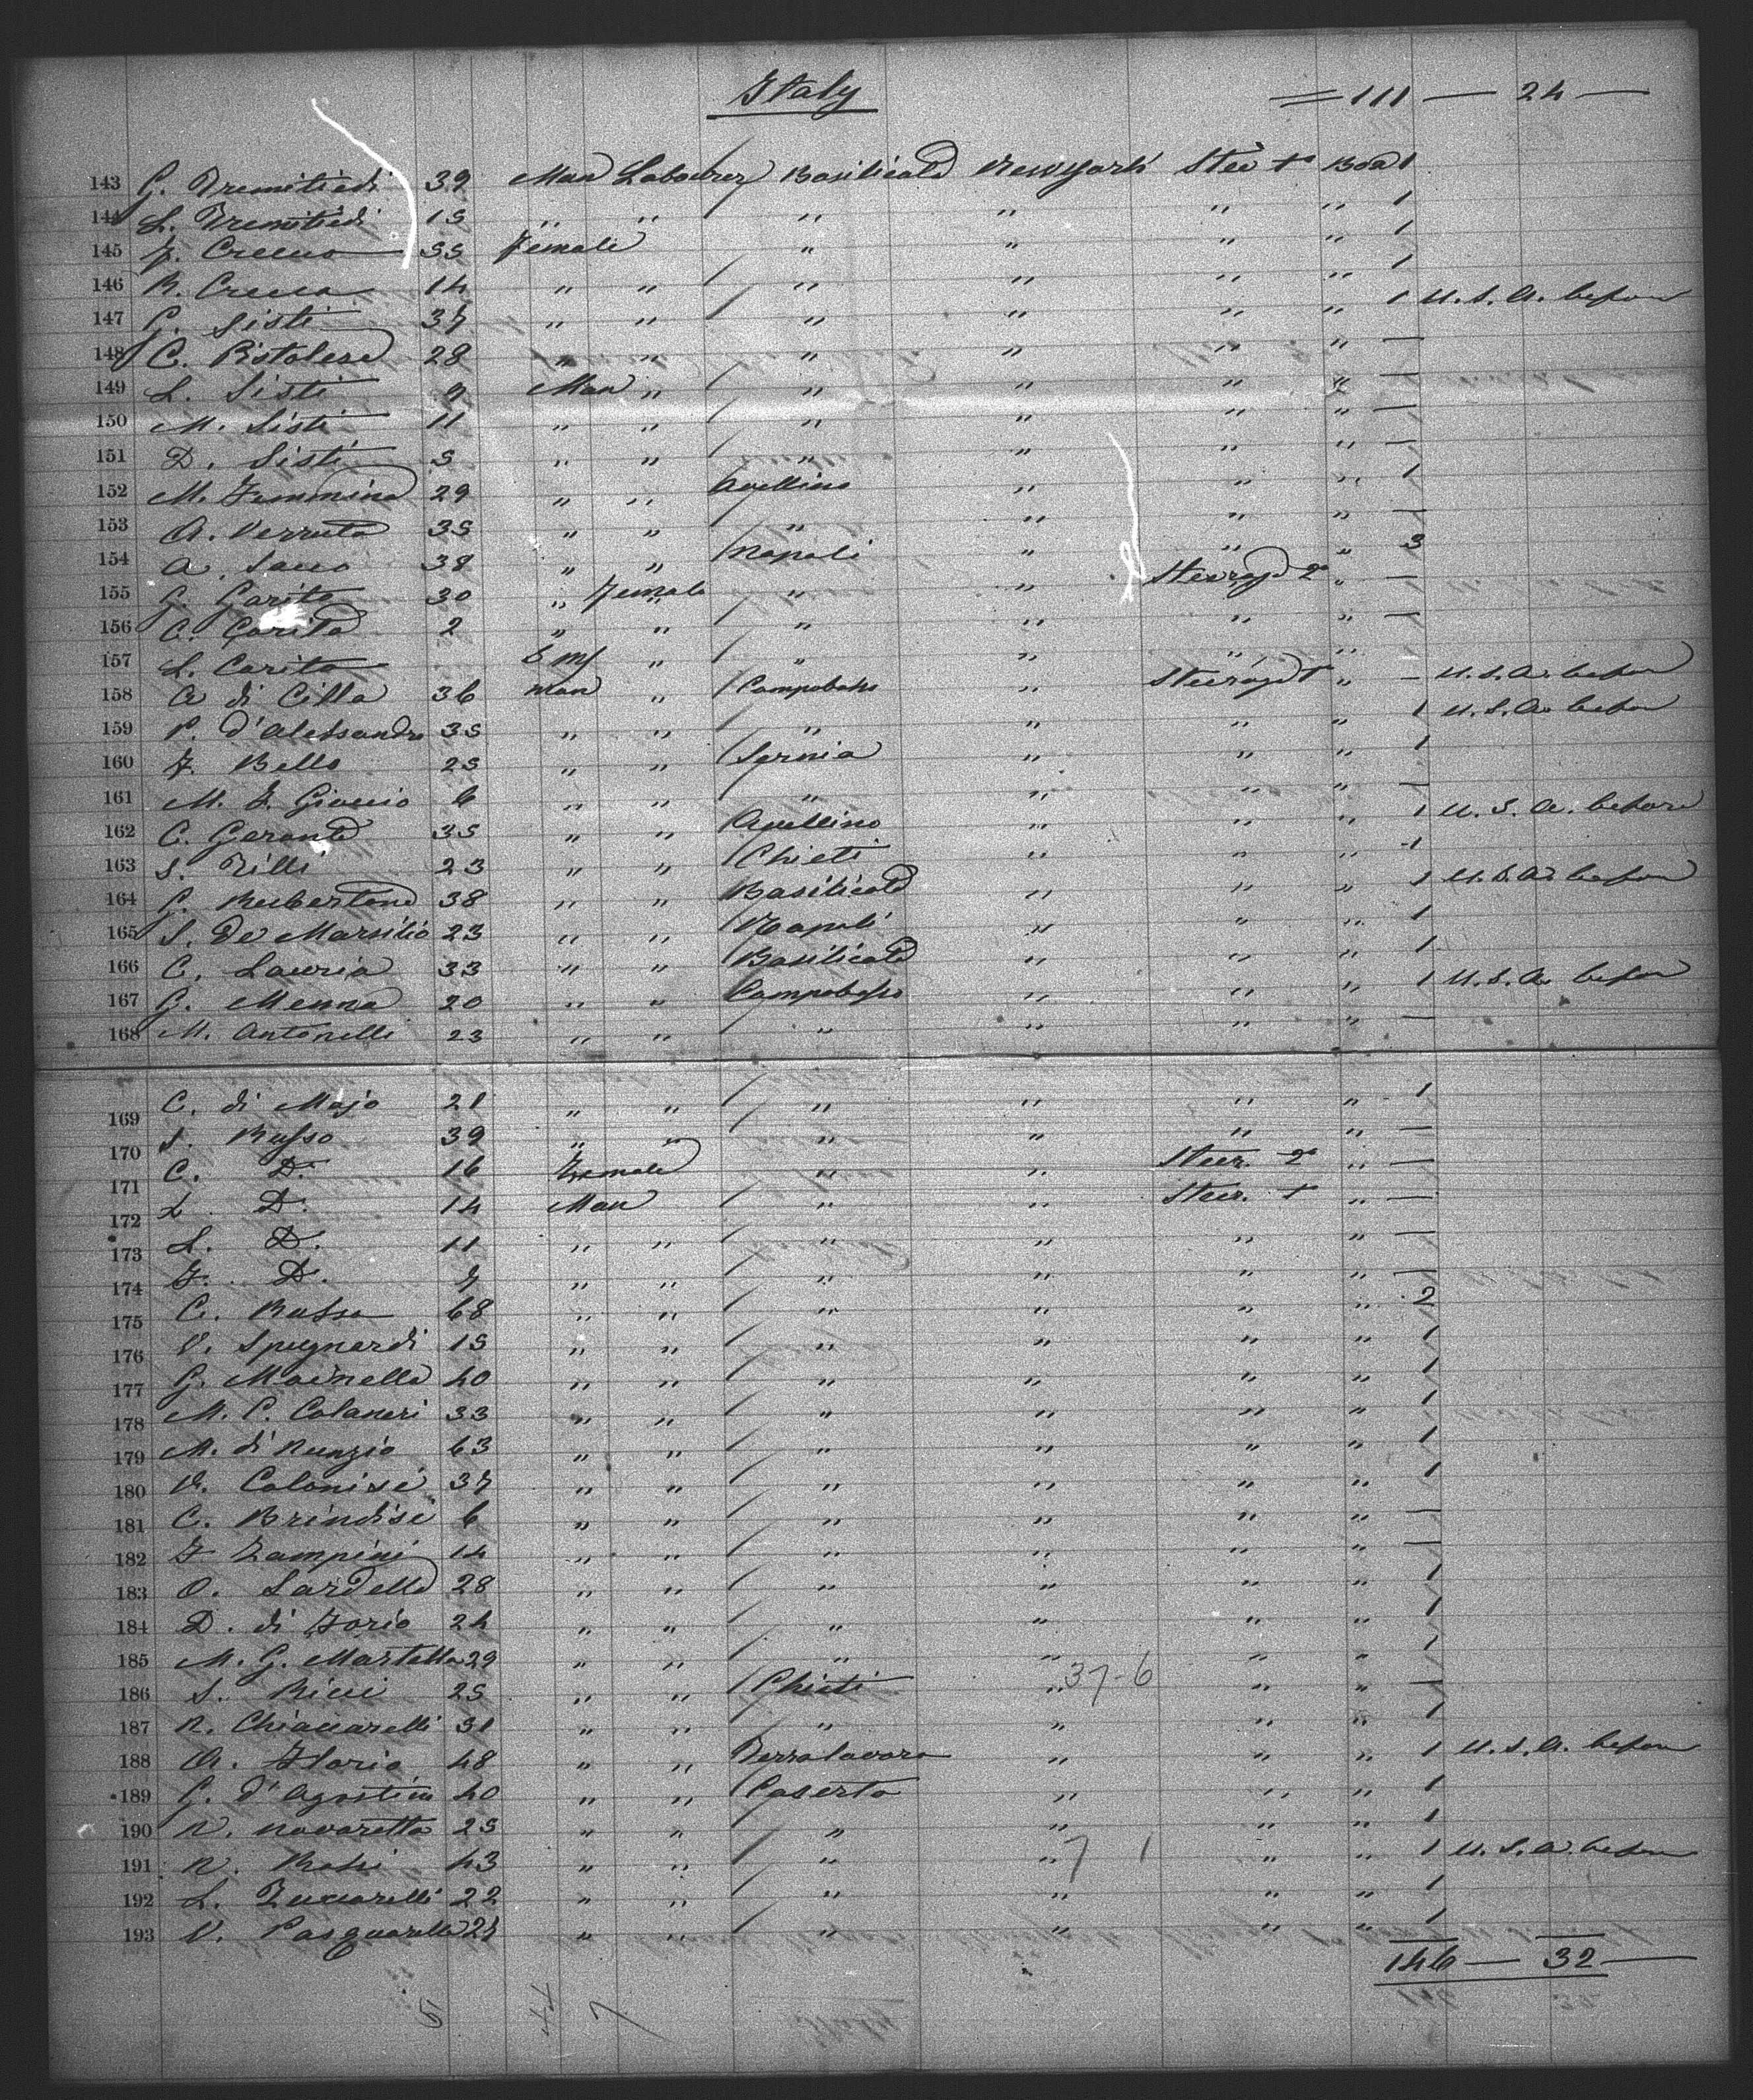 Italy
= 111 — 24 —
143 G. Tremitiedi 39 Man Labourer Basilicata New York Stee 1° Boa 1
144 L. Tremitiedi 15 " " " " " " 1
145 F. Crecco 55 Female " " " " 1
146 R. Crecca 14 " " " " " " 1
147 G. Sisti 37 " " " " " " 1 U.S.A. before
148 C. Pistolese 28 " " " " " " —
149 L. Sisti 9 Man " " " " " —
150 M. Sisti 11 " " " " " " —
151 D. Sisti 5 " " " " " " —
152 M. Femmina 29 " " Avellino " " " 1
153 A. Verruto 35 " " " " " " —
154 A. Sacco 38 " " Napoli " " " 3
155 G. Garito 30 " Female " " Steerage 2° " —
156 C. Garito 2 " " " " " " —
157 L. Carito 6 m/ " " " " "
158 A di Cilla 36 man " Campobasso " Steerage 1° " — U.S.A. before
159 P. d'Alessandro 35 " " " " " " 1 U.S.A. before
160 F. Bello 25 " " Sernia " " " 1
161 M. F. Gioccio 6 " " " " " " —
162 C. Geronto 35 " " Avellino " " " 1 U.S.A. before
163 S. Tilli 23 " " Chieti " " " 1
164 G. Rubertone 38 " " Basilicata " " " 1 U.S.A. before
165 S. De Marsilio 23 " " Napoli " " " 1
166 C. Lauria 33 " " Basilicata " " " 1
167 G. Menna 20 " " Campobasso " " " 1 U.S.A. before
168 M. Antonelli 23 " " " " " " —
169 C. di Majo 21 " " " " " " 1
170 S. Russo 39 " " " " " " —
171 C. D. 16 Female " " Steer. 2° " —
172 L D. 14 Man " " Steer. 1° " —
173 L. D. 11 " " " " " " —
174 F. D. 7 " " " " " " —
175 C. Russo 68 " " " " " " 2
176 V. Spugnardi 15 " " " " " " 1
177 G. Mainella 40 " " " " " " 1
178 M. C. Colaneri 33 " " " " " " 1
179 M. di Nunzio 63 " " " " " " 1
180 V. Colonisi 37 " " " " " " 1
181 C. Brindisi 6 " " " " " " —
182 F Zampini 14 " " " " " " —
183 O. Sardella 28 " " " " " " 1
184 D. di Iorio 24 " " " " " " 1
185 M. G. Martella 29 " " " " " " 1
186 S. Ricci 25 " " Chieti " 37-6 " " —
187 N. Chiavarelli 31 " " " " " " 1
188 A. Florio 48 " " Terralavoro " " " 1 U.S.A. before
189 G. d'Agostino 40 " " Caserta " " " 1
190 N. Navaretta 25 " " " " " " 1
191 N. Rossi 43 " " " " 7 1 " " 1 U.S.A. before
192 L. Zuccarelli 22 " " " " " " 1
193 V. Pasquarella 24 " " " " " " 1
146 — 32 —